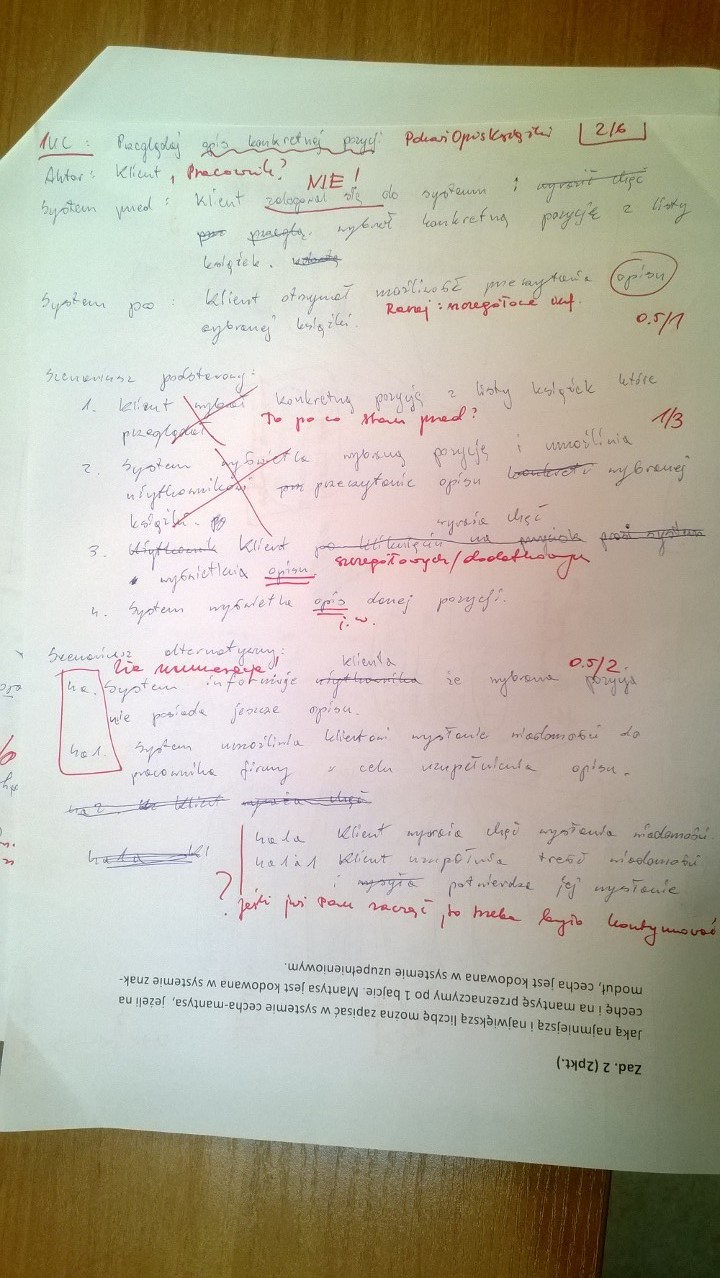 1UC: Przeglądaj opis konkretnej pozycji PokażOpisKsiążki 2/6
Aktor: Klient, Pracownik?
NIE!
System przed: Klient zalogował się do systemu i wyraził chęć
przegląda wybrał konkretną pozycję z listy
książek.
System po: Klient otrzymał możliwość przeczytania opisu
wybranej książki. Raczej: szczegółowe inf. 0.5/1
Scenariusz podstawowy:
1. Klient wybrał konkretną pozycję z listy książek które
przeglądał To po co stan przed? 1/3
2. System wyświetla wybraną pozycję i umożliwia
użytkownikowi przeczytanie opisu konkret wybranej
książki.
wyraża chęć
3. Użytkownik Klient po kliknięciu na przycisk prosi system
wyświetlenia opisu. szczegółowych/dodatkowych
4. System wyświetla opis danej pozycji.
i.w.
Scenariusz alternatywny:
Zła numeracja! klienta 0.5/2
4a. System informuje użytkownika że wybrana pozycja
nie posiada jeszcze opisu.
4a1. System umożliwia klientowi wysłanie wiadomości do
pracownika firmy w celu uzupełnienia opisu.
4a2. Klient wyraża chęć
4a1a Kl
4a1a Klient wyraża chęć wysłania wiadomości.
4a1a1 Klient uzupełnia treść wiadomości
i wysyła potwierdza jej wysłanie
? Jeśli już Pan zaczął, to trzeba było kontynuować
Zad. 2 (2pkt.)
Jaką najmniejszą i największą liczbę można zapisać w systemie cecha-mantysa, jeżeli na
cechę i na mantysę przeznaczymy po 1 bajcie. Mantysa jest kodowana w systemie znak-
moduł, cecha jest kodowana w systemie uzupełnieniowym.